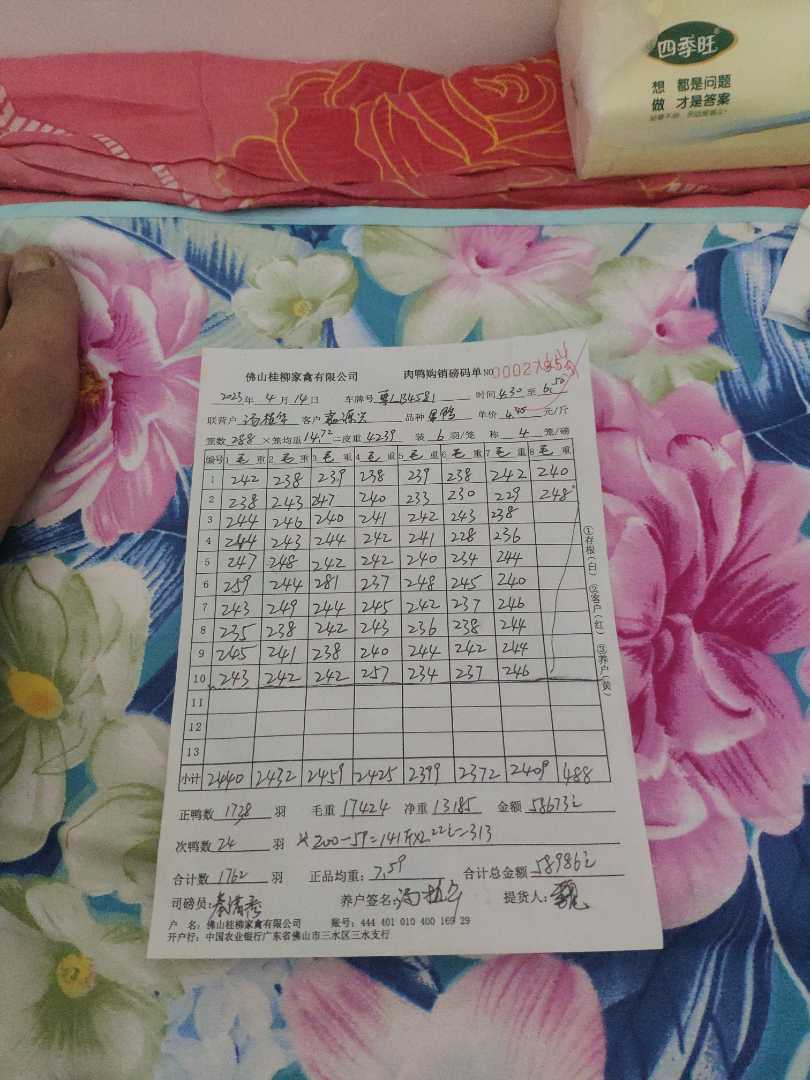 四季旺
想 都是问题
做 才是答案
佛山桂柳家禽有限公司 肉鸭购销磅码单 NO
2023年 4月 14日 车牌号 粤LB4581 时间 4.30 至 6.50
联营户 客户 品种 单价 4.45 元/斤
笼数 288 ×笼均重 14.72 =皮重 4239 装 6 羽/笼 称 4 笼/磅
编号 1 毛 重 2 毛 重 3 毛 重 4 毛 重 5 毛 重 6 毛 重 7 毛 重 8 毛 重
1 242 238 239 238 239 238 242 240
2 238 243 247 240 233 230 229 248
3 244 246 240 241 242 243 238
4 244 243 244 242 241 228 236
5 247 248 242 242 240 234 244
6 259 244 281 237 248 245 240
7 243 249 244 245 242 237 246
8 235 238 242 243 236 238 244
9 245 241 238 240 244 242 244
10 243 242 242 257 234 237 246
11
12
13
小计 2440 2432 2459 2425 2399 2372 2409 488
①存根(白) ②客户(红) ③养户(黄)
正鸭数 1738 羽 毛重 17424 净重 13185 金额 58673元
次鸭数 24 羽 200-59=141斤×2.22元=313
合计数 1762 羽 正品均重: 7.59 合计总金额 58986元
司磅员: 养户签名: 提货人:
户 名: 佛山桂柳家禽有限公司 账号: 444 401 010 400 169 29
开户行: 中国农业银行广东省佛山市三水区三水支行